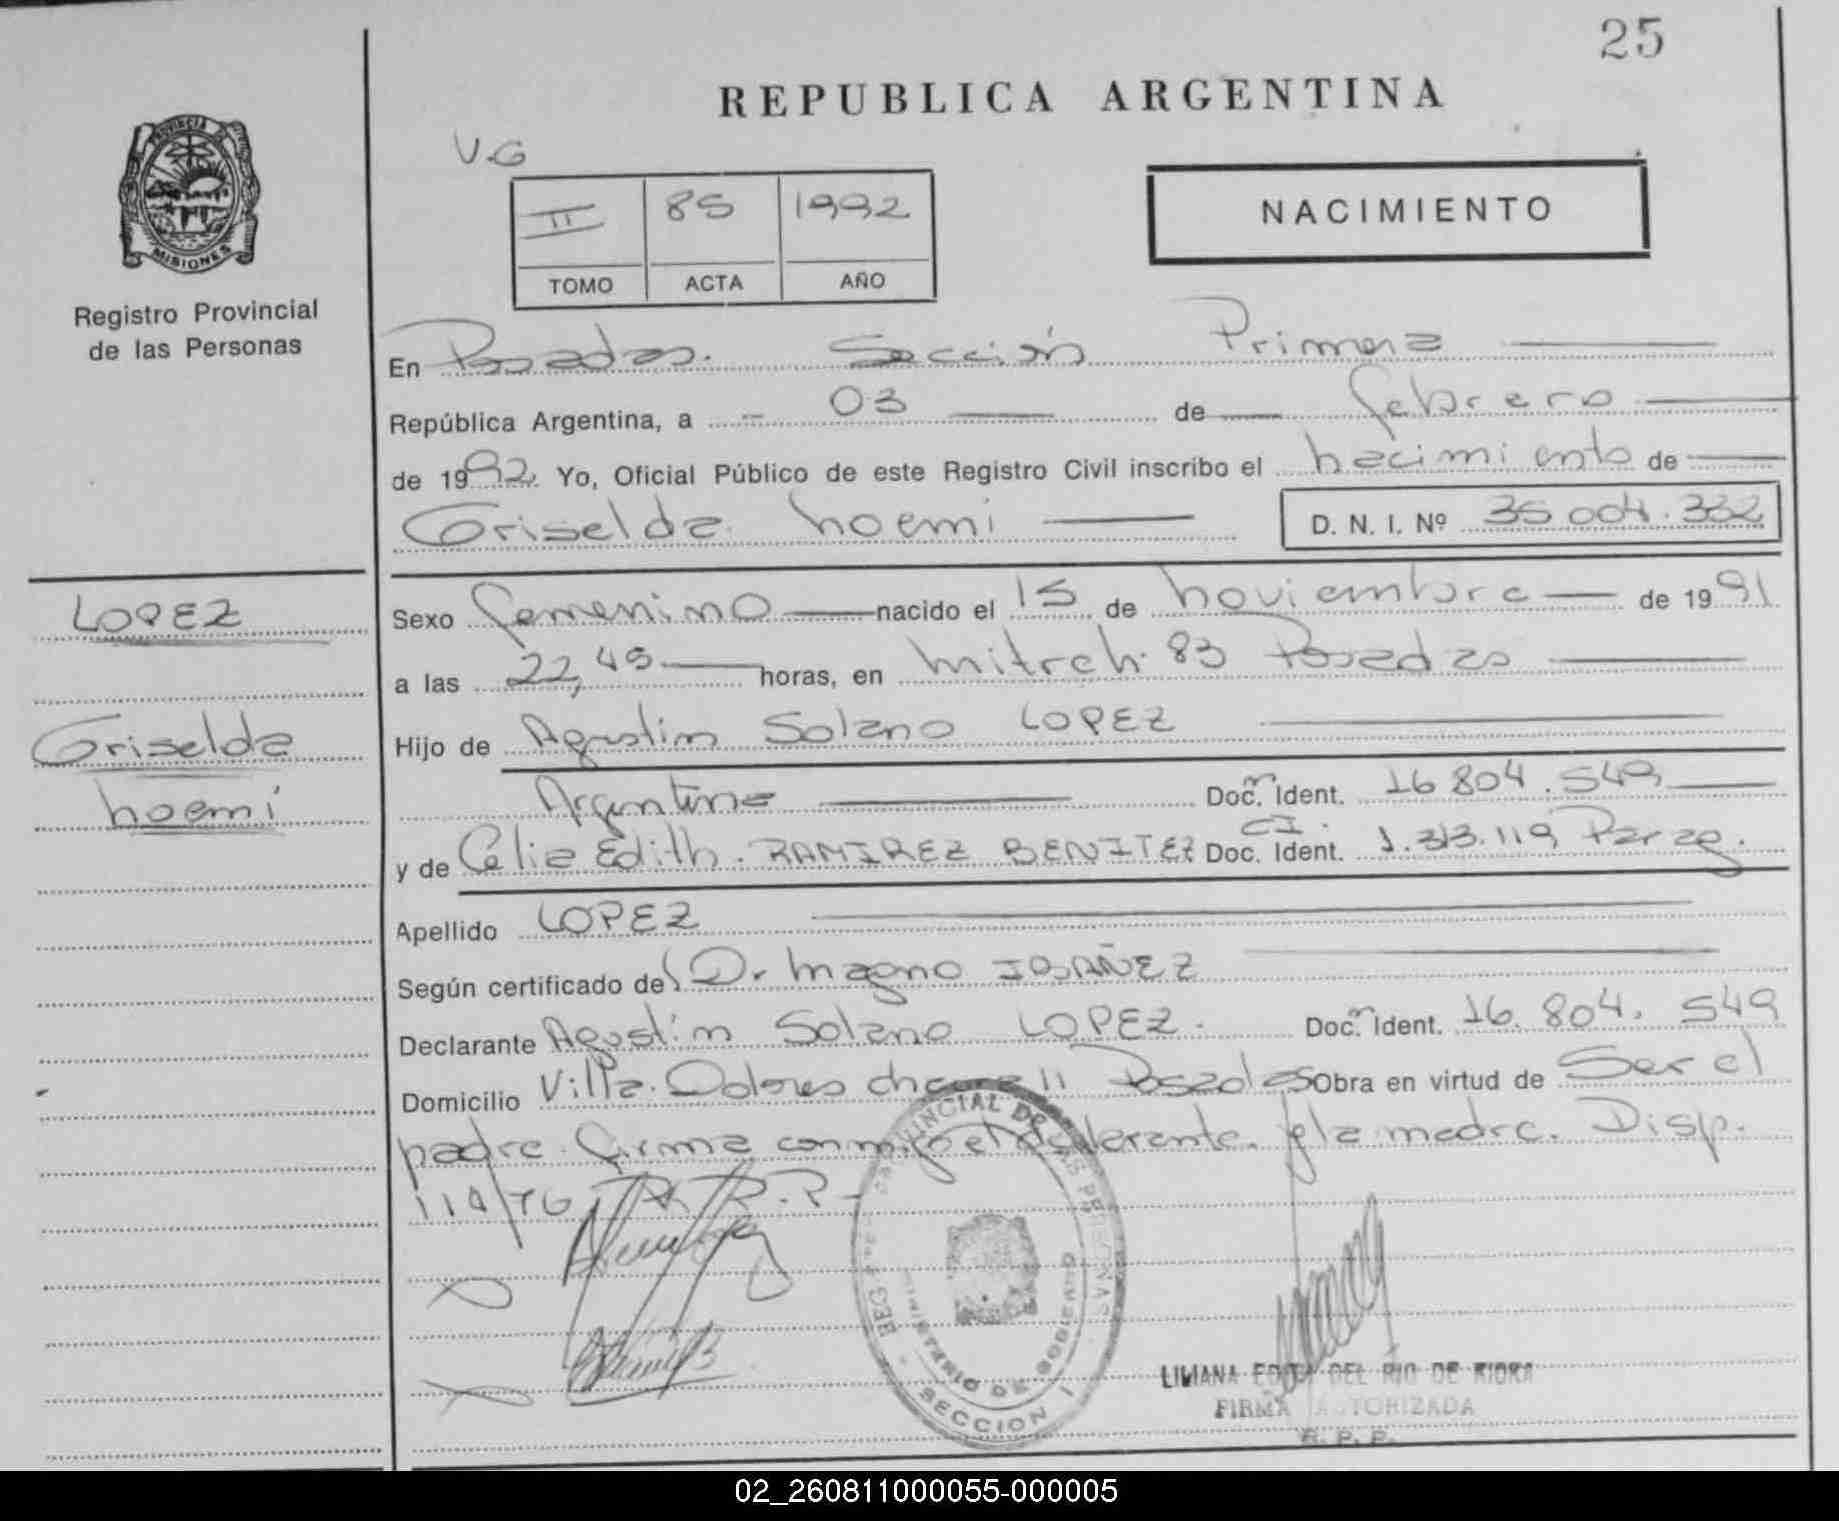 25
REPUBLICA ARGENTINA
V.G
II 85 1992
TOMO ACTA AÑO
NACIMIENTO
PROVINCIA
MISIONES
Registro Provincial
de las Personas
En Posadas. Sección Primera
República Argentina, a 03 de febrero
de 1992 Yo, Oficial Público de este Registro Civil inscribo el nacimiento de
Griselda noemi D. N. I. Nº 35 004.332
LOPEZ
Griselda
noemi
Sexo femenino nacido el 15 de noviembre de 1991
a las 22,45 horas, en mitreh. 83 Posadas
Hijo de Agustin Solano LOPEZ
Argentina Doc. Ident. 16 804.549
y de Celia Edith. RAMIREZ BENITEZ CI. Doc. Ident. 1.313.119 Parag.
Apellido LOPEZ
Según certificado de Dr magno IBAÑEZ
Declarante Agustin Solano LOPEZ. Doc. Ident. 16.804.549
Domicilio Villa Dolores chacra 11 Posadas Obra en virtud de Ser el
padre. firma conmigo el declarante. y la madre. Disp.
114/76 R.P.
MINISTERIO DE GOBIERNO
SECCION I
LILIANA EDITA DEL RIO DE RIORA
FIRMA AUTORIZADA
R. P. P.
02_260811000055-000005